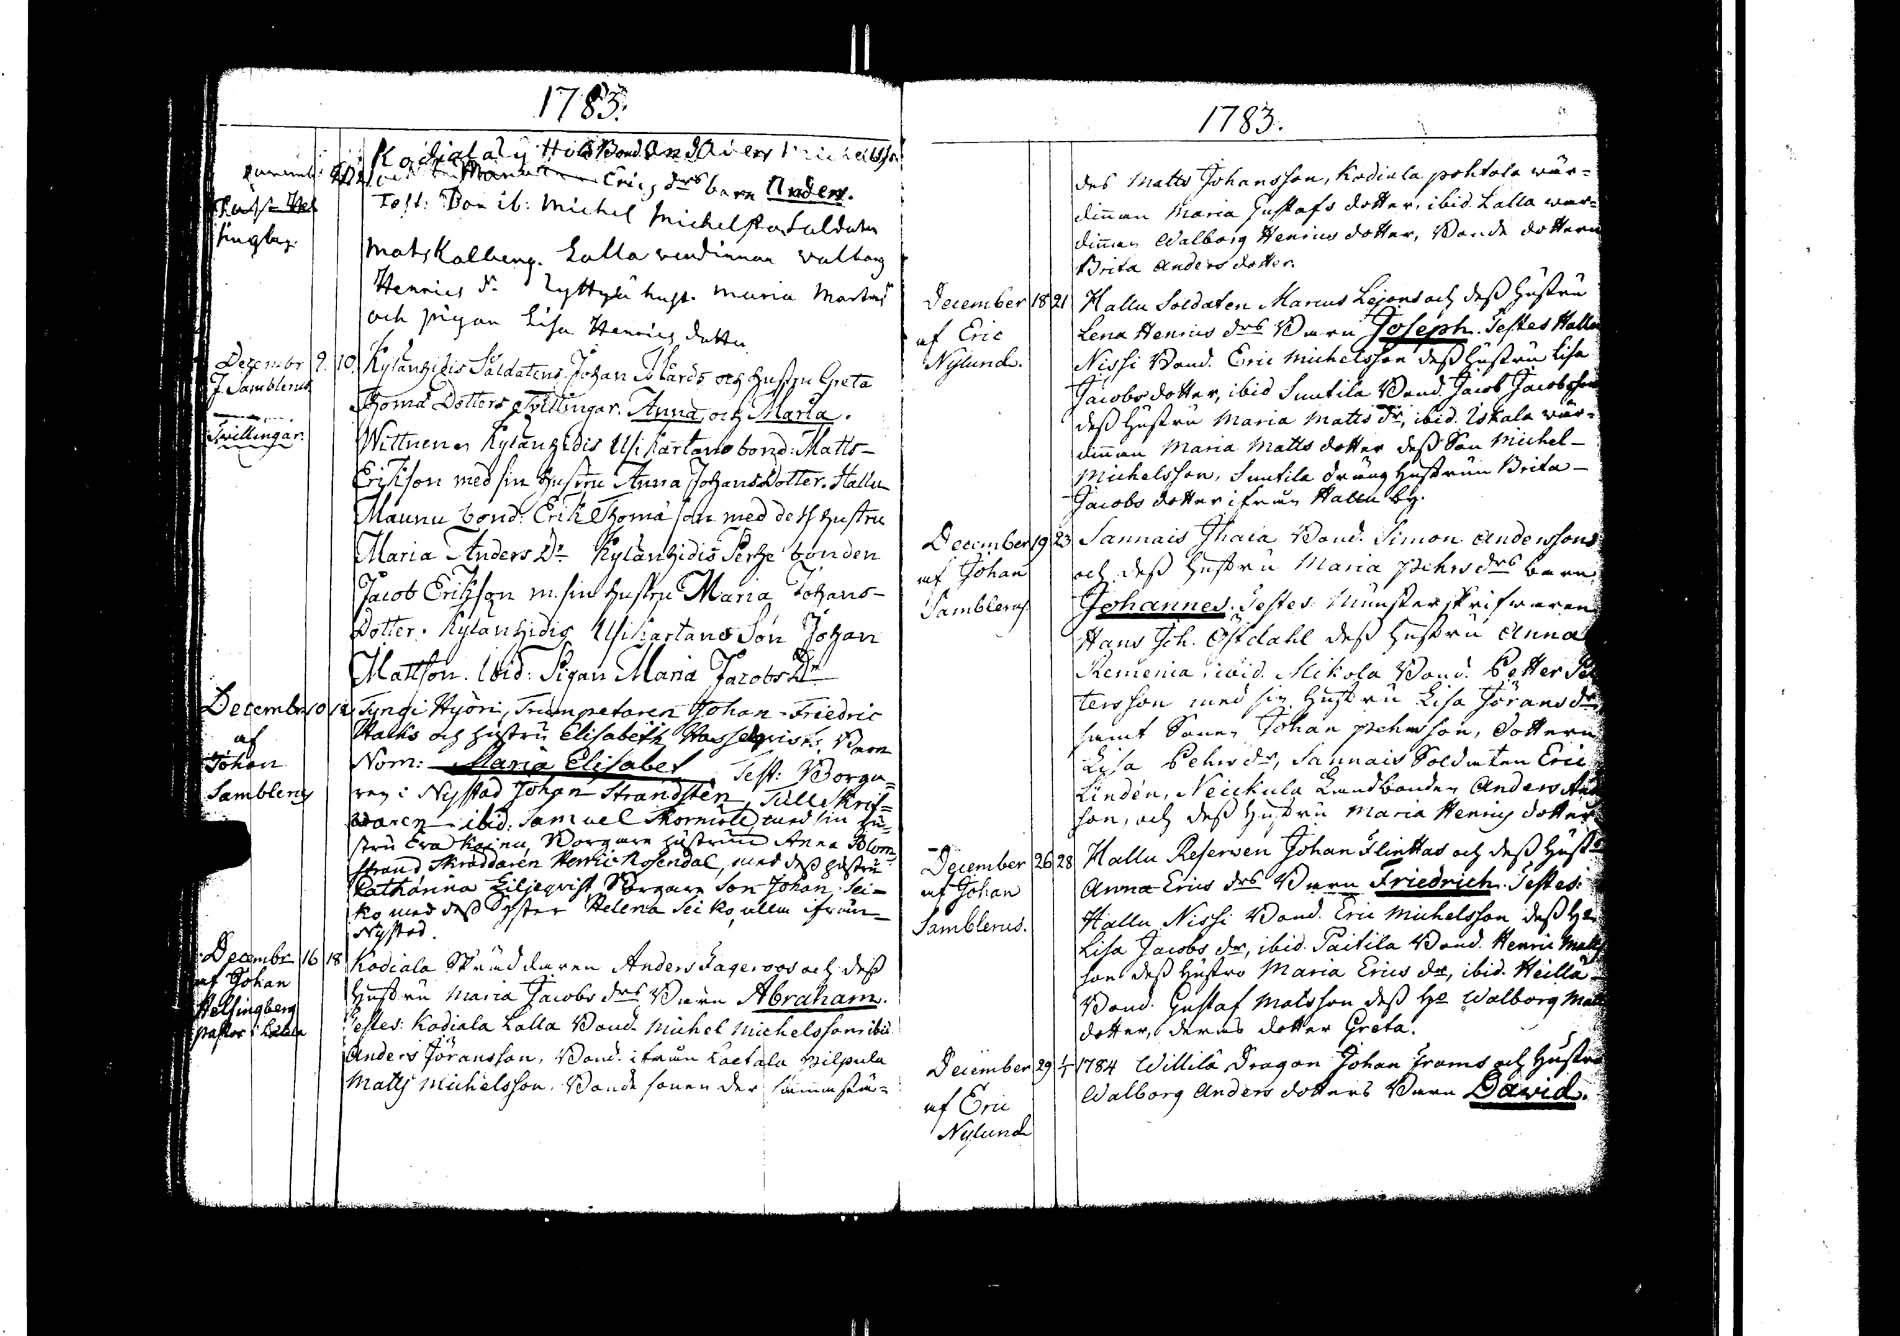 1783.
Bond Anders Michelsson
Erics drs barn Anders.
Test: Bon ib: Michel Michelsson Soldaten
Mats Kalberg. Lalla werdinnan walborg
Henrics dr hust. maria
och pigan Lisa Henrics dotter
Decembr 9. 10. Kylänhidis Saldatens Johan och hustru Greta
J. Samblerus
Thomä Dotters Tvillingar. Anna och Maria.
Tvillingar.
Wittnen Kylänhidis Ulikartano bond: Matts
Erikson med sin hustru Anna Johans Dotter. Hallu
Maunu bond: Erik Thomä son med dess hustru
Maria Anders Dr Kylänhidis Perhe bonden
Jacob Erikson m. sin hustru Maria Johans-
Dotter. Kylänhidis Ulikartano Son Johan
Mattson. Ibid: Pigan Maria Jacobs Dr
Decembr 10 12 Tyngi Hyöri, Trumpetaren Johan Friedric
af
Johan
Samblerus
och hustru Elisabeth Hasselqvists Barn
Nom: Maria Elisabet Test: Borga-
ren i Nystad Johan Strandsten, Tullskrif-
waren ibid: Samuel med sin hu-
stru Eva Borgare hustrun Anna Blom-
strand Skräddaren Henric Rosendal, med dess hustru
Catharina Liljeqvist Borgare Son Johan Sei-
ko med dess Syster Helena Seiko, alla ifrån
Nystad.
Decembr 16 18 Kodiala Skräddaren Anders Lageroos och dess
af Johan
Helsingberg
pastor i
Hustru Maria Jacobs drs Barn Abraham.
Testes: Kodiala Lalla Bond. Michel Michelsson ibid
Anders Jöransson, Bond. ifrån Laitala Pilpula
Matts Michelsson, Bonde sonen der sammastä-
1783.
des Matts Johansson, Kodiala pohtola wär-
dinnan Maria Gustafs dotter, ibid. Lalla wär-
dinnan Walborg Henrics dotter, Bonde dottern
Brita Anders dotter.
December 18 21 Hallu Soldaten Marcus Lejons och dess hustru
af Eric
Nylund.
Lena Henrics drs Barn Joseph. Testes Hallu
Nissi Bond. Eric Michelsson dess hustru Lisa
Jacobs dotter, ibid Suutila Bond. Jacob Jacobsson
dess hustru Maria Matts dr, ibid. Uskala wär-
dinnan Maria Matts dotter dess Son Michel
Michelsson, Suutila dräng hustrun Brita
Jacobs dotter ifrån Hallu by.
December 19 23 Sannais Ihaia Bond. Simon Anderssons
af Johan
Samblerus.
och dess hustru Maria Pehrs drs barn
Johannes. Testes: Mönsterskrifwaren
Hans Joh. Östdahl dess hustru Anna
Remenia, ibid. Mikola Bond. Petter Pe
tersson med sin hustru Lisa Jörans dr,
samt Sonen Johan Pehrsson, dottern
Lisa Pehrs dr, Sannais Soldaten Eric
Lindén, Neickula Landbonden Anders
son, och dess hustru Maria Henrics dotter
December 26 28 Hallu Reserven Johan Flinttas och dess hust
af Johan
Samblerus.
Anna Erics drs Barn Friedrich. Testes:
Hallu Nissi Bond. Eric Michelsson dess
Lisa Jacobs dr, ibid. Paitila Bond. Henric Matts
son dess hustro Maria Erics dr, ibid. Heillä
Bond. Gustaf Matsson dess Ho Walborg Matts
dotter, deras dotter Greta.
December 29 1/1 1784 Willilä Dragon Johan Froms och hustru
af Eric
Nylund
Walborg Anders dotters Barn David.